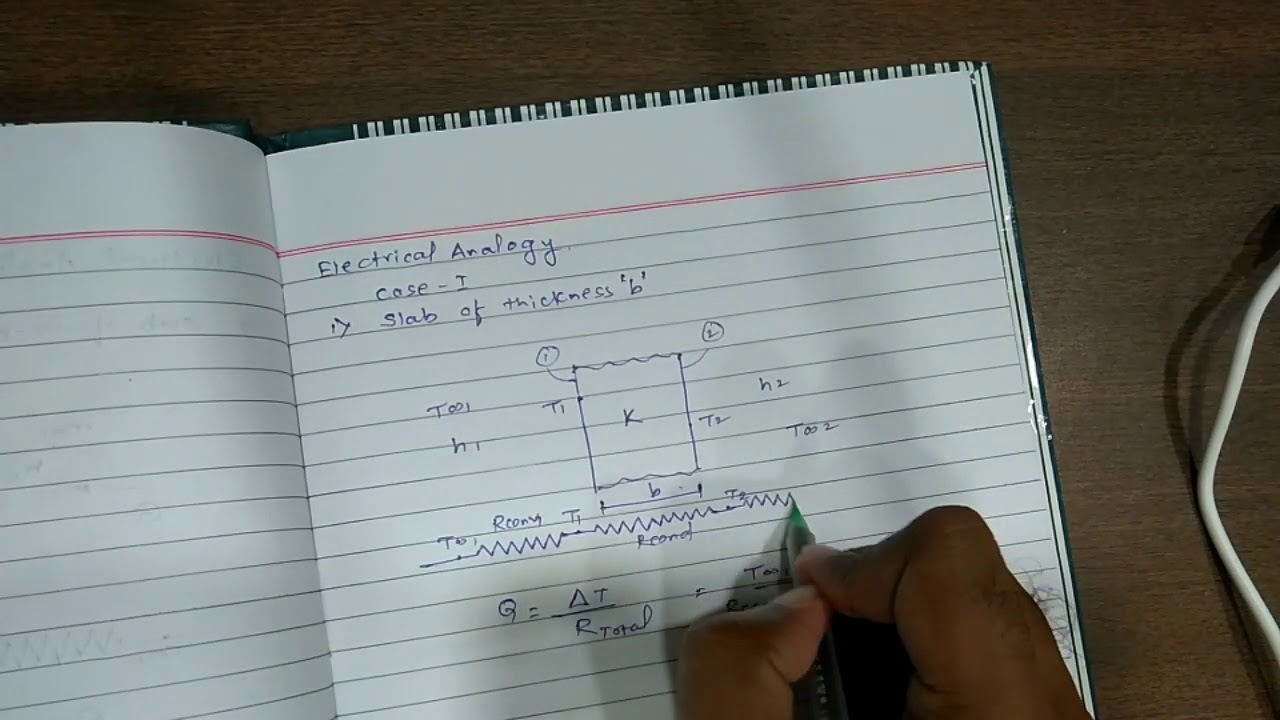 Electrical Analogy
case - I
1) Slab of thickness 'b'
1 2
T∞1 T1 K T2 h2
h1 T∞2
b
T∞1 Rconv T1 Rcond T2
Q = ΔT / RTotal = T∞1